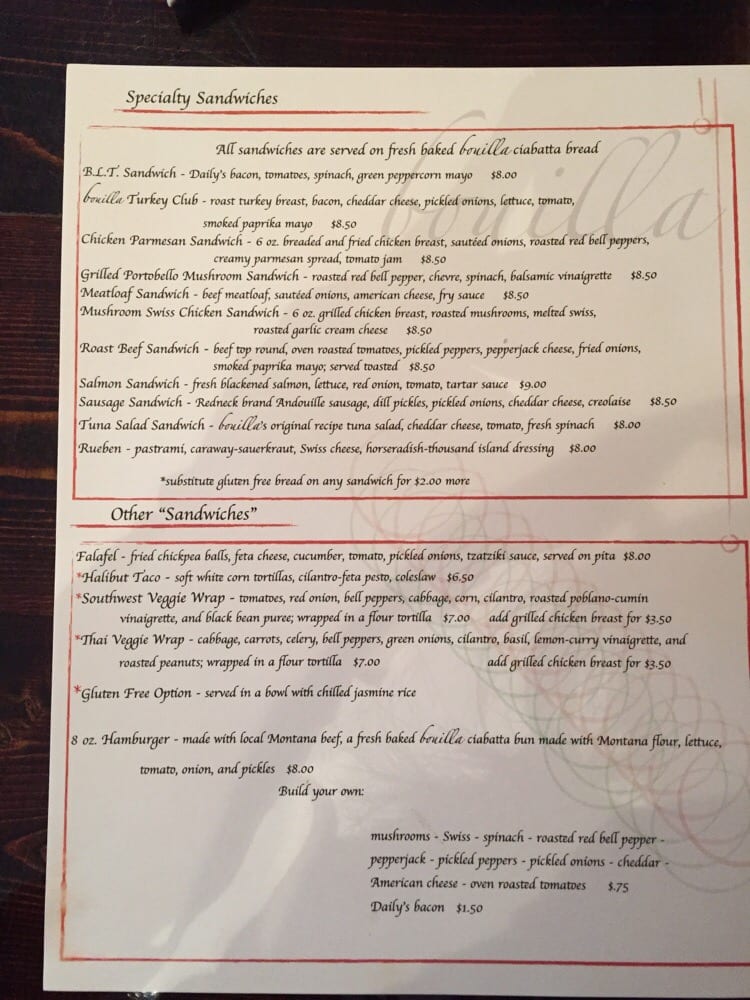 Specialty Sandwiches
All sandwiches are served on fresh baked bouilla ciabatta bread
B.L.T. Sandwich - Daily's bacon, tomatoes, spinach, green peppercorn mayo $8.00
bouilla Turkey Club - roast turkey breast, bacon, cheddar cheese, pickled onions, lettuce, tomato,
smoked paprika mayo $8.50
Chicken Parmesan Sandwich - 6 oz. breaded and fried chicken breast, sautéed onions, roasted red bell peppers,
creamy parmesan spread, tomato jam $8.50
Grilled Portobello Mushroom Sandwich - roasted red bell pepper, chevre, spinach, balsamic vinaigrette $8.50
Meatloaf Sandwich - beef meatloaf, sautéed onions, american cheese, fry sauce $8.50
Mushroom Swiss Chicken Sandwich - 6 oz. grilled chicken breast, roasted mushrooms, melted swiss,
roasted garlic cream cheese $8.50
Roast Beef Sandwich - beef top round, oven roasted tomatoes, pickled peppers, pepperjack cheese, fried onions,
smoked paprika mayo; served toasted $8.50
Salmon Sandwich - fresh blackened salmon, lettuce, red onion, tomato, tartar sauce $9.00
Sausage Sandwich - Redneck brand Andouille sausage, dill pickles, pickled onions, cheddar cheese, creolaise $8.50
Tuna Salad Sandwich - bouilla's original recipe tuna salad, cheddar cheese, tomato, fresh spinach $8.00
Rueben - pastrami, caraway-sauerkraut, Swiss cheese, horseradish-thousand island dressing $8.00
*substitute gluten free bread on any sandwich for $2.00 more
bouilla
Other “Sandwiches”
Falafel - fried chickpea balls, feta cheese, cucumber, tomato, pickled onions, tzatziki sauce, served on pita $8.00
*Halibut Taco - soft white corn tortillas, cilantro-feta pesto, coleslaw $6.50
*Southwest Veggie Wrap - tomatoes, red onion, bell peppers, cabbage, corn, cilantro, roasted poblano-cumin
vinaigrette, and black bean puree; wrapped in a flour tortilla $7.00 add grilled chicken breast for $3.50
*Thai Veggie Wrap - cabbage, carrots, celery, bell peppers, green onions, cilantro, basil, lemon-curry vinaigrette, and
roasted peanuts; wrapped in a flour tortilla $7.00 add grilled chicken breast for $3.50
*Gluten Free Option - served in a bowl with chilled jasmine rice
8 oz. Hamburger - made with local Montana beef, a fresh baked bouilla ciabatta bun made with Montana flour, lettuce,
tomato, onion, and pickles $8.00
Build your own:
mushrooms - Swiss - spinach - roasted red bell pepper -
pepperjack - pickled peppers - pickled onions - cheddar -
American cheese - oven roasted tomatoes $.75
Daily's bacon $1.50